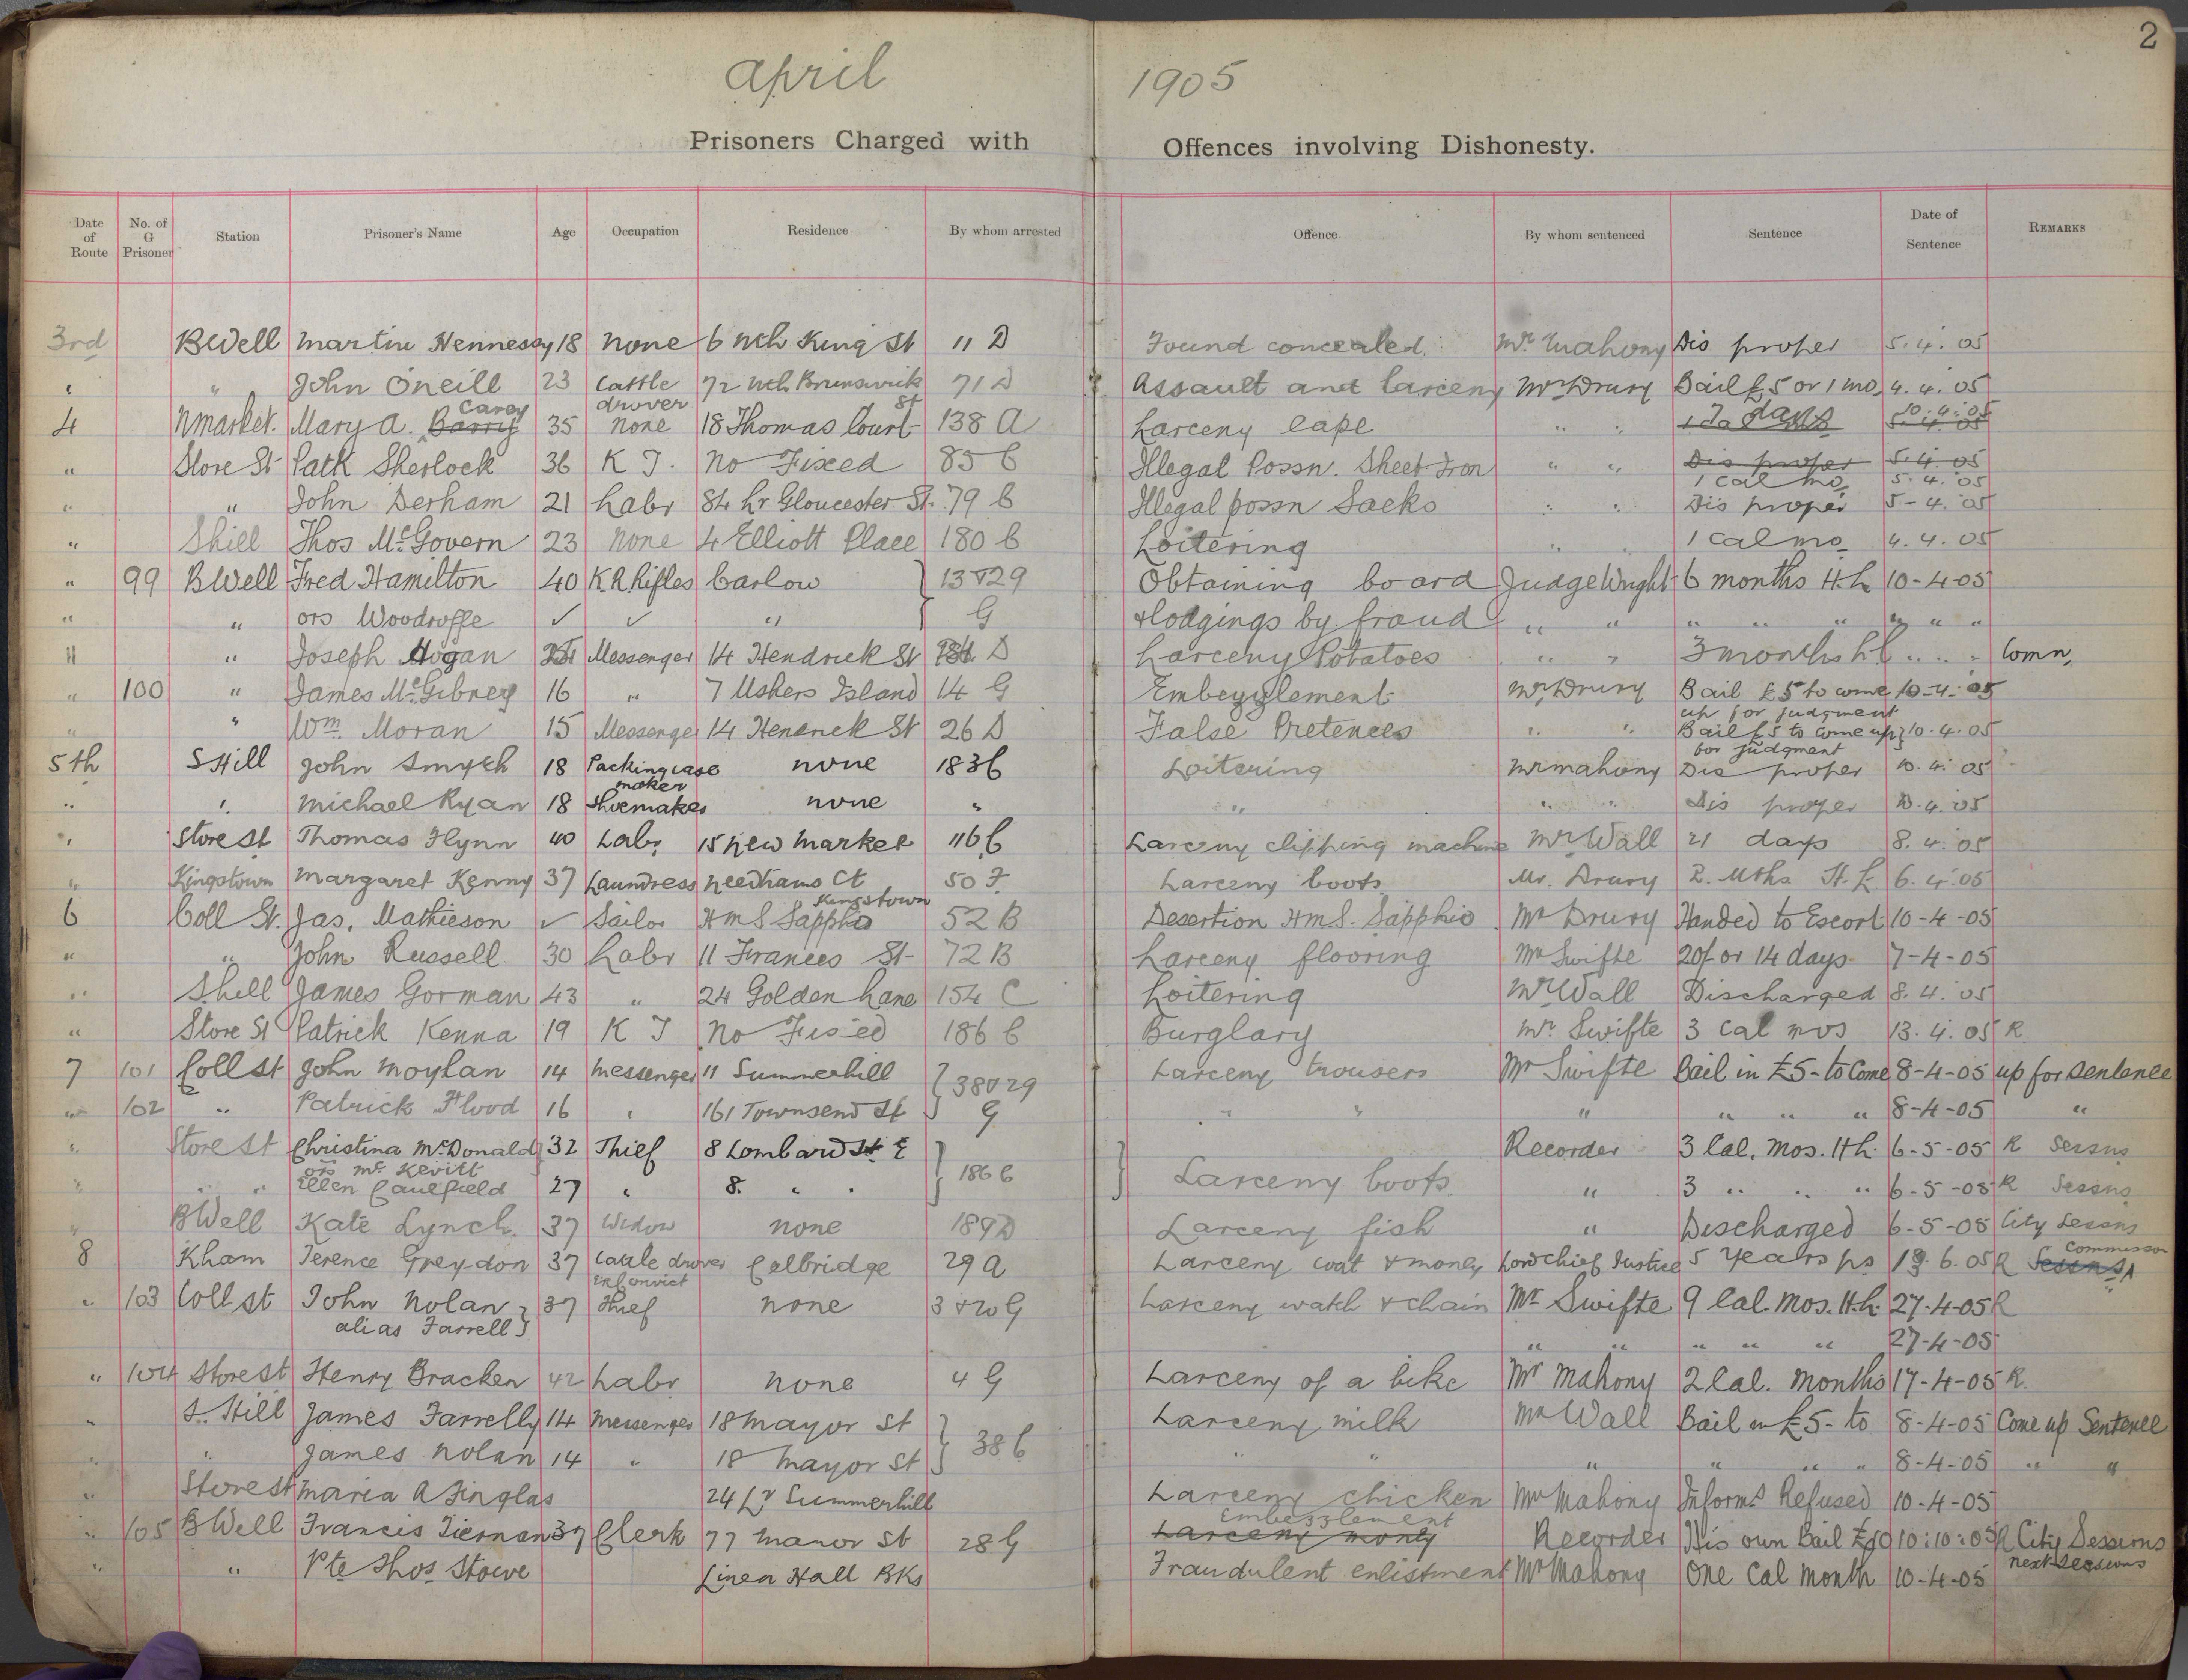 2
April 1905
Prisoners Charged with Offences involving Dishonesty.
Date of Route | No. of G Prisoner | Station | Prisoner's Name | Age | Occupation | Residence | By whom arrested | Offence | By whom sentenced | Sentence | Date of Sentence | Remarks
3rd BWell Martin Hennessy 18 None 6 Nth King St 11 D Found concealed Mr Mahony Dis proper 5.4.05
" " John Oneill 23 Cattle drover 72 Nth Brunswick St 71 D Assault and larceny Mr Drury Bail £5 or 1 mo. 4.4.05
4 Nmarket. Mary A. Barry Carey 35 none 18 Thomas Court 138 A Larceny Cape " " days 5.4.05 10.4.05
" Store St Patk Sherlock 36 K T. No Fixed 85 C Illegal Possn. Sheet Iron " " Dis proper 5.4.05 1 cal mo. 5.4.05
" " John Derham 21 Labr 84 Lr Gloucester St. 79 C Illegal possn Sacks " " Dis proper 5-4.05
" SHill Thos McGovern 23 None 4 Elliott Place 180 C Loitering " " 1 cal mo 4.4.05
" 99 BWell Fred Hamilton 40 K.R.Rifles Carlow } 13 & 29 Obtaining board Judge Wright 6 months H.L 10-4-05
" " ors Woodroffe ✓ ✓ " } G & lodgings by fraud " " " " " " " "
" " Joseph Hogan Messenger 14 Hendrick St D Larceny Potatoes " " 3 months h.l " " " Comn.
" 100 " James McGibney 16 " 7 Ushers Island 14 G Embezzlement Mr Drury Bail £5 to come up for judgment 10-4-05
" " Wm. Moran 15 Messenger 14 Hendrick St 26 D False Pretences " " Bail £5 to come up for judgment } 10.4.05
5th SHill John Smyth 18 Packing case maker none 183C Loitering Mr Mahony Dis proper 10.4.05
" " Michael Ryan 18 Shoemaker none " " " " Dis proper 10.4.05
" Store St Thomas Flynn 40 Labr. 15 New Market 116 C Larceny clipping machine Mr Wall 21 days 8.4.05
" Kingstown Margaret Kenny 37 Laundress Needhams Ct Kingstown 50 F. Larceny boots Mr. Drury 2. Mths H.L 6.4.05
6 Coll St. Jas. Mathieson ✓ Sailor H.M.S Sappho 52 B Desertion H.M.S. Sapphio Mr Drury Handed to Escort 10-4-05
" " John Russell 30 Labr 11 Frances St 72 B Larceny flooring Mr Swifte 20/- or 14 days 7-4-05
" S.hill James Gorman 43 " 24 Golden Lane 154 C Loitering Mr Wall Discharged 8.4.05
" Store St Patrick Kenna 19 K T No Fixed 186 C Burglary Mr. Swifte 3 Cal mos 13.4.05 R
7 101 Coll St John Moylan 14 Messenger 11 Summerhill } 38 & 29 Larceny trousers Mr Swifte Bail in £5- to Come 8-4-05 up for Sentence
" 102 " Patrick Flood 16 " 161 Townsend St } G " " " " " " 8-4-05 "
" Store St Christina McDonald 32 Thief 8 Lombard St E } 186 C } Larceny boots Recorder 3 Cal. Mos. H.h. 6-5-05 R Sessns
ors Mc Kevitt
" " " Ellen Caulfield 27 " 8. " " " 3 " " " 6-5-05 R Sessns
" BWell Kate Lynch. 37 Widow none 189D Larceny fish " Discharged 6-5-05 City Sessns
8 Kham Terence Greydon 37 Cattle drover Celbridge 29 A Larceny coat & money Lord Chief Justice 5 Years ps 6.05 R Sessns Commission
" 103 Coll St John Nolan } 37 Ex Convict Thief none 3 & 20 G Larceny watch & chain Mr Swifte 9 Cal. Mos. H.h. 27-4-05 R
alias Farrell } " " " " " 27-4-05
" 104 Store St Henry Bracken 42 Labr none 4 G Larceny of a bike Mr Mahony 2 Cal. Months 17-4-05 R.
" S. Hill James Farrelly 14 Messenger 18 Mayor St } 38 C Larceny milk Mr Wall Bail in £5- to 8-4-05 Come up Sentence
" " James Nolan 14 " 18 Mayor St } " " " " " " 8-4-05 " "
" Store St Maria A Finglas 24 Lr Summerhill Larceny chicken Mr Mahony Informs Refused 10-4-05
" 105 BWell Francis Tiernan 37 Clerk 77 Manor St 28 G Larceny money Embezzlement Recorder His own Bail £10 10:10:05 R City Sessions
" " Pte Thos Stowe Linen Hall BKs Fraudulent enlistment Mr Mahony One Cal Month 10-4-05 next sessions